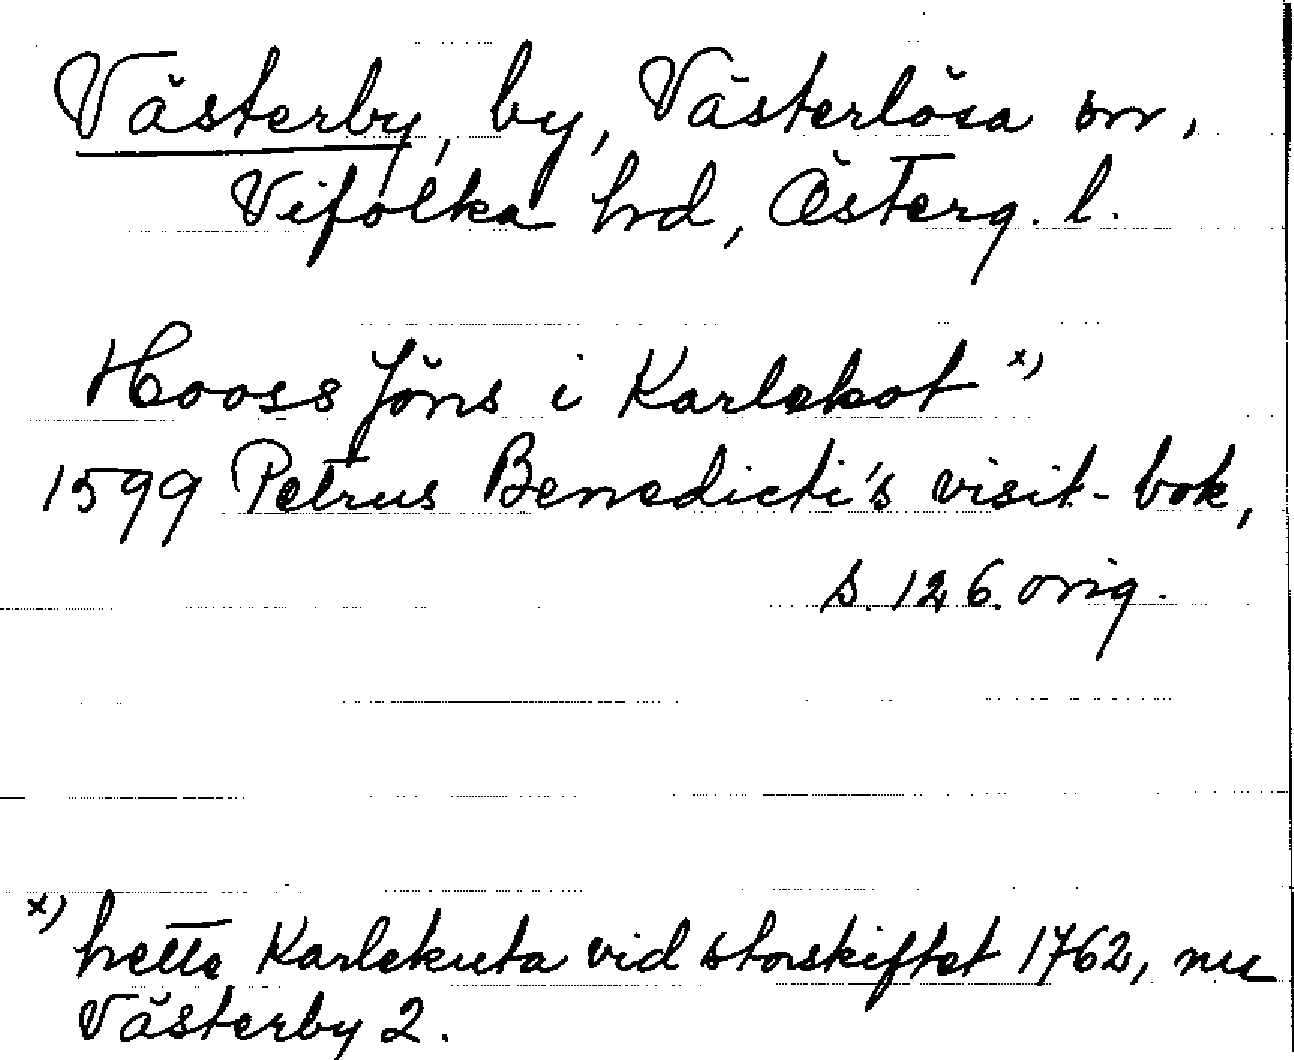 Västerby, by, Västerlösa sn,
Vifolka hrd, Österg. l.
Hooss Jöns i Karlekot x)
1599 Petrus Benedicti's visit-bok,
s. 126. orig.
x) hette Karlekuta vid storskiftet 1762, nu
Västerby 2.